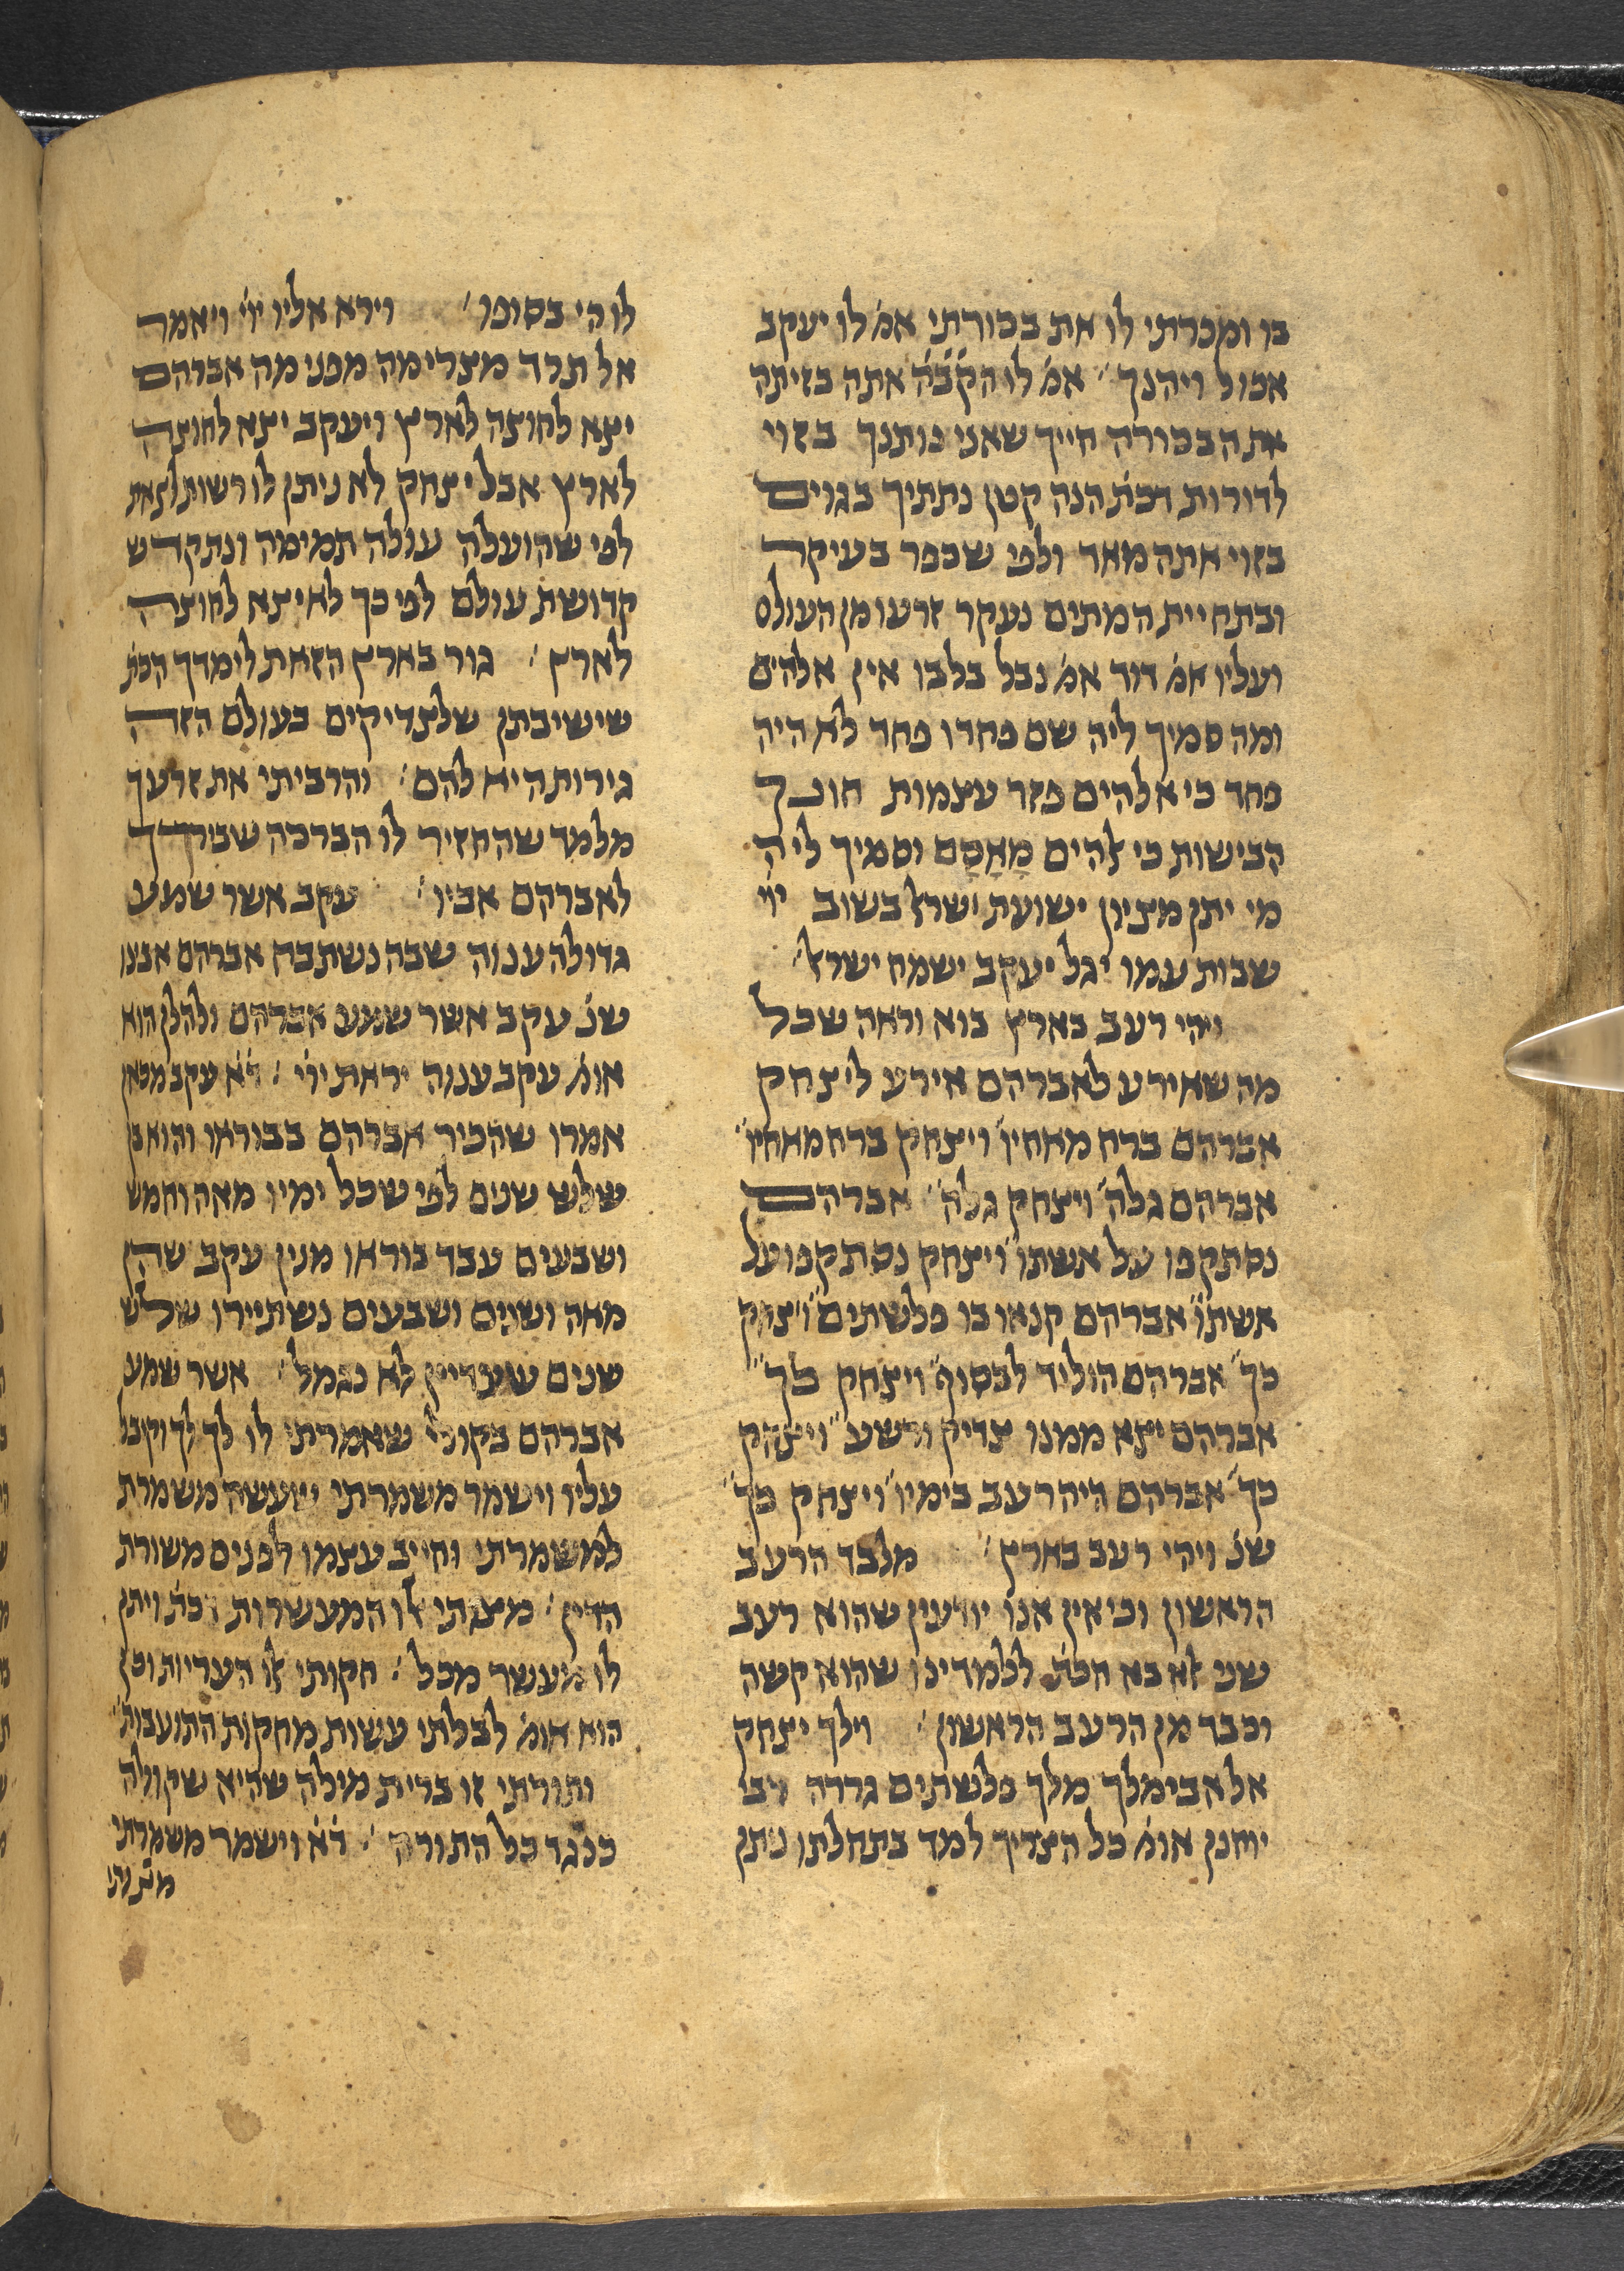 בו ומכרתי לו את בכורתי אמ' לו יעקב
אכול ויהנך ׳ אמ' לו הק'ב'ה' אתה בזיתה
את הבכורה חייך שאני נותנך בזוי
לדורות דכת' הנה קטן נתתיך בגוים
בזוי אתה מאד ולפי שכפר בעיקר
ובתחיית המתים נעקר זרעו מן העולם
ועליו אמ' דוד אמ' נבל בלבו אין אלהים
ומה סמיך ליה שם פחדו פחד לא היה
פחד כי אלהים פזר עצמות חונך
הבישות כי אלהים מְאָסָם וסמיך ליה
מי יתן מציון ישועת ישראל בשוב יי'
שבות עמו יגל יעקב ישמח ישראל ׳
ויהי רעב בארץ בוא וראה שכל
מה שאירע לאברהם אירע ליצחק
אברהם ברח מאחיו ויצחק ברח מאחיו
אברהם גלה ויצחק גלה אברהם
נסתקפו על אשתו ויצחק נסתקפו על
אשתו אברהם קנאו בו פלשתים ויצחק
כך אברהם הוליד לבסוף ויצחק כך
אברהם יצא ממנו צדיק ורשע ויצחק
כך אברהם היה רעב בימיו ויצחק כך
שנ' ויהי רעב בארץ ׳ מלבד הרעב
הראשון וכי אין אנו יודעין שהוא רעב
שני לא בא הכת' ללמדינו שהוא קשה
וכבד מן הרעב הראשון ׳ וילך יצחק
אל אבימלך מלך פלשתים גררה רבי
יוחנן אומ' כל הצריך למד בתחלתו ניתן
לו הי בסופו ׳ וירא אליו יי' ויאמר
אל תרד מצרימה מפני מה אברהם
יצא לחוצה לארץ ויעקב יצא לחוצה
לארץ אבל יצחק לא ניתן לו רשות לצאת
לפי שהועלה עולה תמימה ונתקדש
קדושת עולם לפי כך לא יצא לחוצה
לארץ ׳ גור בארץ הזאת לימדך הכת'
שישיבתן שלצדיקים בעולם הזה
גירות היא להם ׳ והרביתי את זרעך
מלמד שהחזיר לו הברכה שבירך
לאברהם אביו ׳ עקב אשר שמע
גדולה ענוה שבה נשתבח אברהם אבינו
שנ' עקב אשר שמע אברהם ולהלן הוא
אומ' עקב ענוה יראת יי' ׳ ד'א' עקב מכאן
אמרו שהכיר אברהם בבוראו והוא בן
שלש שנים לפי שכל ימיו מאה וחמש
ושבעים עבד בוראו מנין עקב שהן
מאה ושנים ושבעים נשתיירו שלש
שנים שעדיין לא נגמל ׳ אשר שמע
אברהם בקולי שאמרתי לו לך לך וקבל
עליו וישמר משמרתי שעשה משמרת
למשמרתי וחייב עצמו לפנים משורת
הדין ׳ מצותי אלו המעשרות דכת' ויתן
לו מעשר מכל ׳ חקותי אלו העריות וכן
הוא אומ' לבלתי עשות מחקות התועבות
ותורתי זו ברית מילה שהיא שקולה
כנגד כל התורה ׳ ד'א' וישמר משמרתי